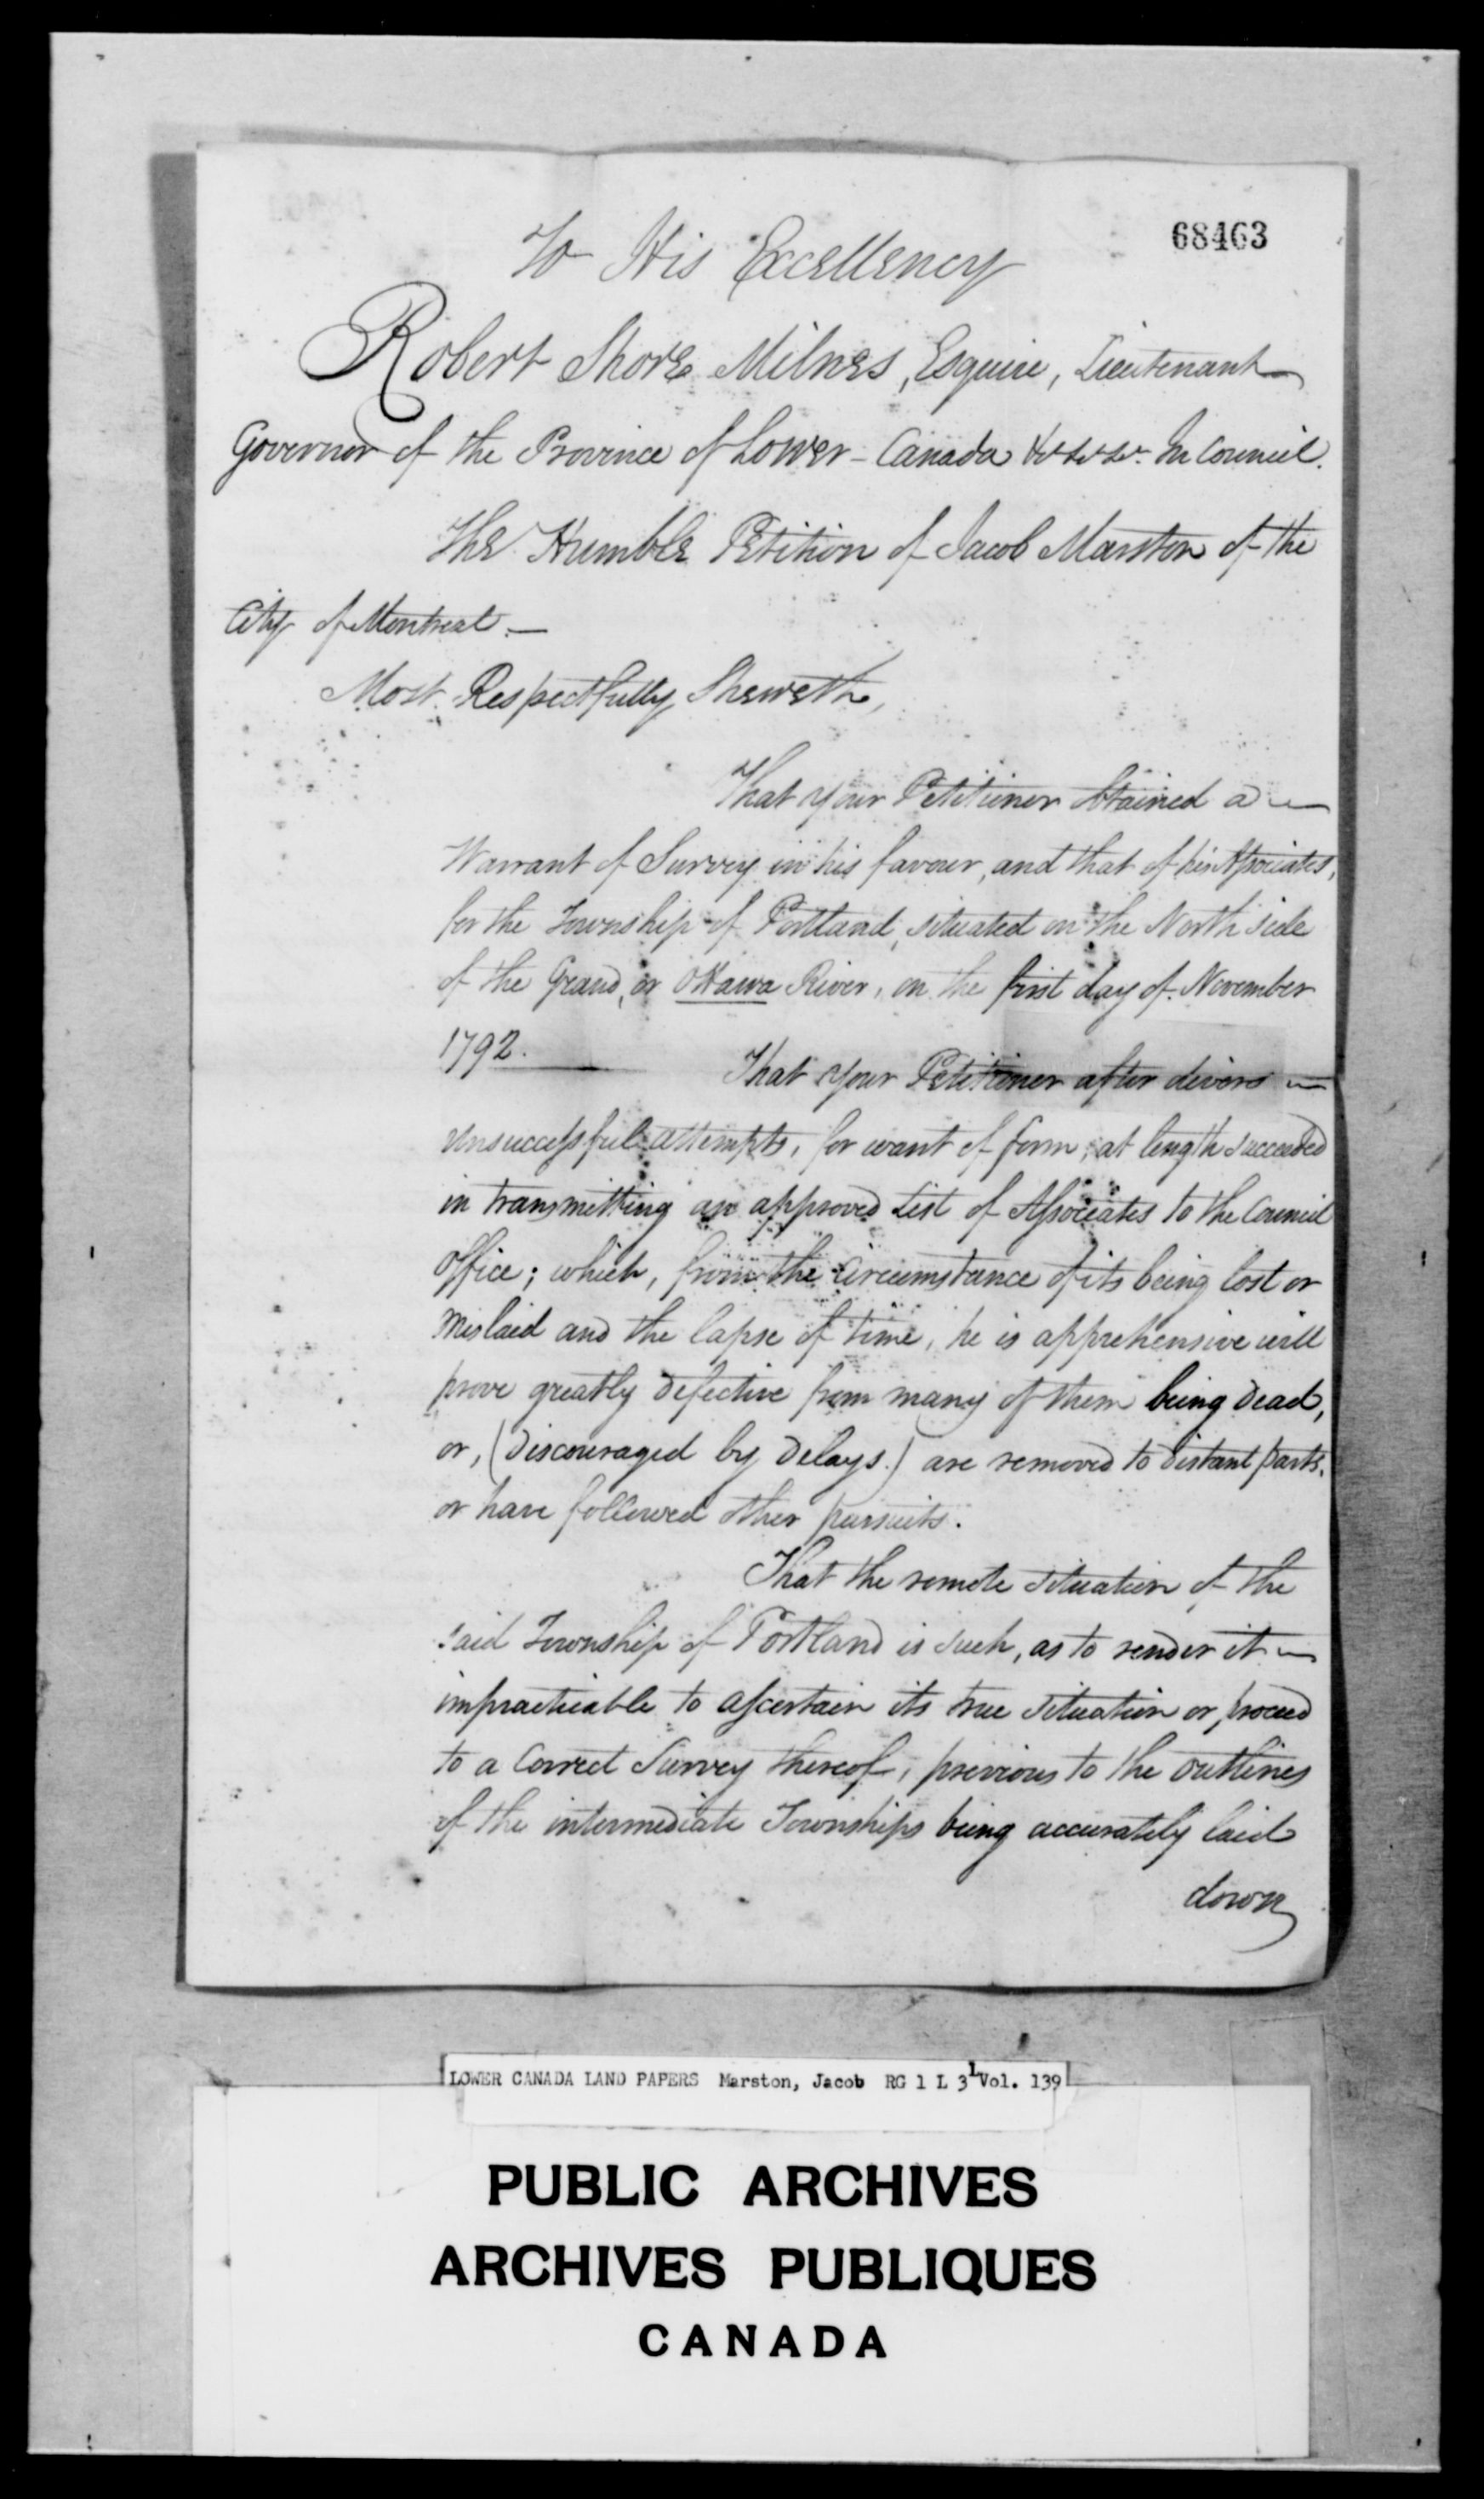 68463
To His Excellency
Robert Shore Milnes, Esquire, Lieutenant
Governor of the Province of Lower-Canada &c &c &c. In Council.
The Humble Petition of Jacob Marston of the
City of Montreal.—
Most Respectfully Sheweth,
That your Petitioner obtained a
Warrant of Survey in his favour, and that of his Associates,
for the Township of Portland, situated on the North side
of the Grand, or Ottawa River, on the first day of November
1792.
That your Petitioner after divers
unsuccessful attempts, for want of form, at length succeeded
in transmitting an approved List of Associates to the Council
Office; which, from the Circumstance of its being lost or
mislaid and the lapse of time, he is apprehensive will
prove greatly defective from many of them being Dead,
or, (Discouraged by Delays.) are removed to Distant parts,
or have followed other pursuits.
That the remote situation of the
said Township of Portland is such, as to render it
impracticable to ascertain its true situation or, proceed
to a Correct Survey thereof, previous to the outlines
of the intermediate Townships being accurately laid
down
LOWER CANADA LAND PAPERS Marston, Jacob RG 1 L 3 L Vol. 139
PUBLIC ARCHIVES
ARCHIVES PUBLIQUES
CANADA